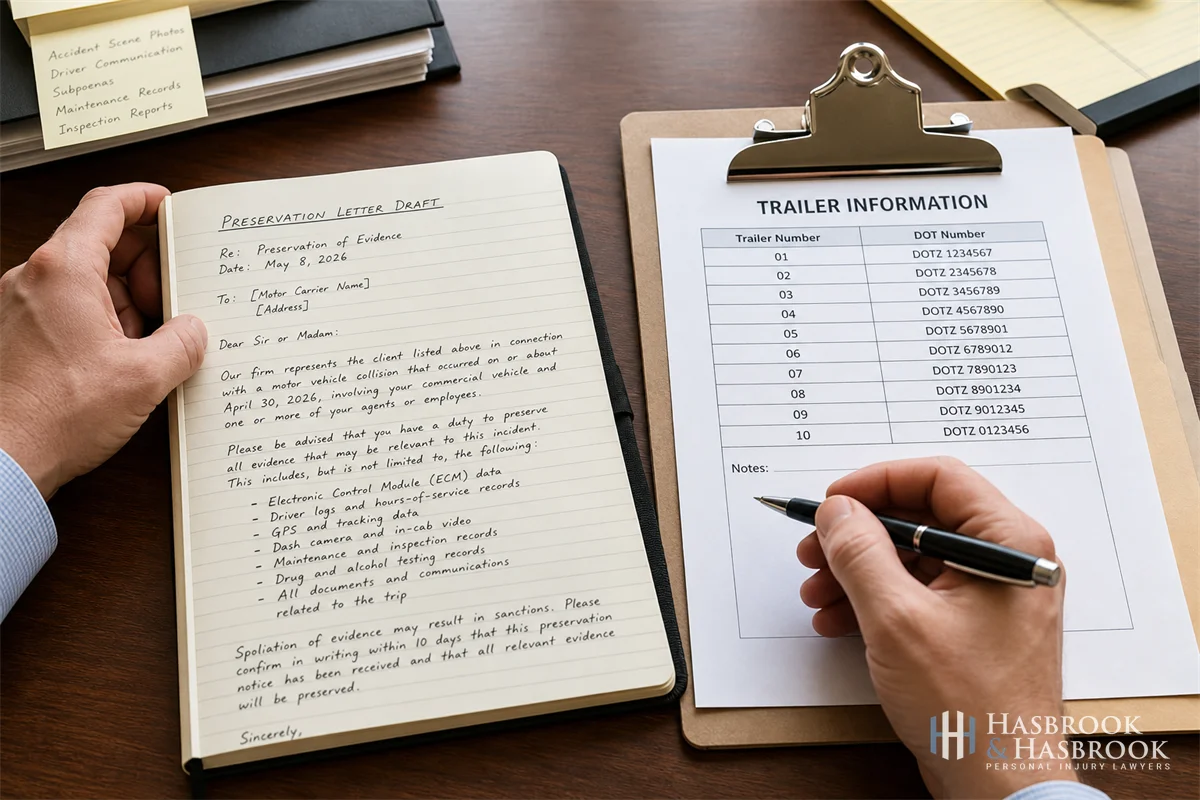 Accident Scene Photos
Driver Communication
Subpoenas
Maintenance Records
Inspection Reports
PRESERVATION LETTER DRAFT
Re: Preservation of Evidence
Date: May 8, 2026
To: [Motor Carrier Name]
[Address]
Dear Sir or Madam:
Our firm represents the client listed above in connection
with a motor vehicle collision that occurred on or about
April 30, 2026, involving your commercial vehicle and
one or more of your agents or employees.
Please be advised that you have a duty to preserve
all evidence that may be relevant to this incident.
This includes, but is not limited to, the following:
- Electronic Control Module (ECM) data
- Driver logs and hours-of-service records
- GPS and tracking data
- Dash camera and in-cab video
- Maintenance and inspection records
- Drug and alcohol testing records
- All documents and communications
related to the trip
Spoliation of evidence may result in sanctions. Please
confirm in writing within 10 days that this preservation
notice has been received and that all relevant evidence
will be preserved.
Sincerely,
TRAILER INFORMATION
Trailer Number DOT Number
01 DOTZ 1234567
02 DOTZ 2345678
03 DOTZ 3456789
04 DOTZ 4567890
05 DOTZ 5678901
06 DOTZ 6789012
07 DOTZ 7890123
08 DOTZ 8901234
09 DOTZ 9012345
10 DOTZ 0123456
Notes:
HASBROOK
& HASBROOK
PERSONAL INJURY LAWYERS